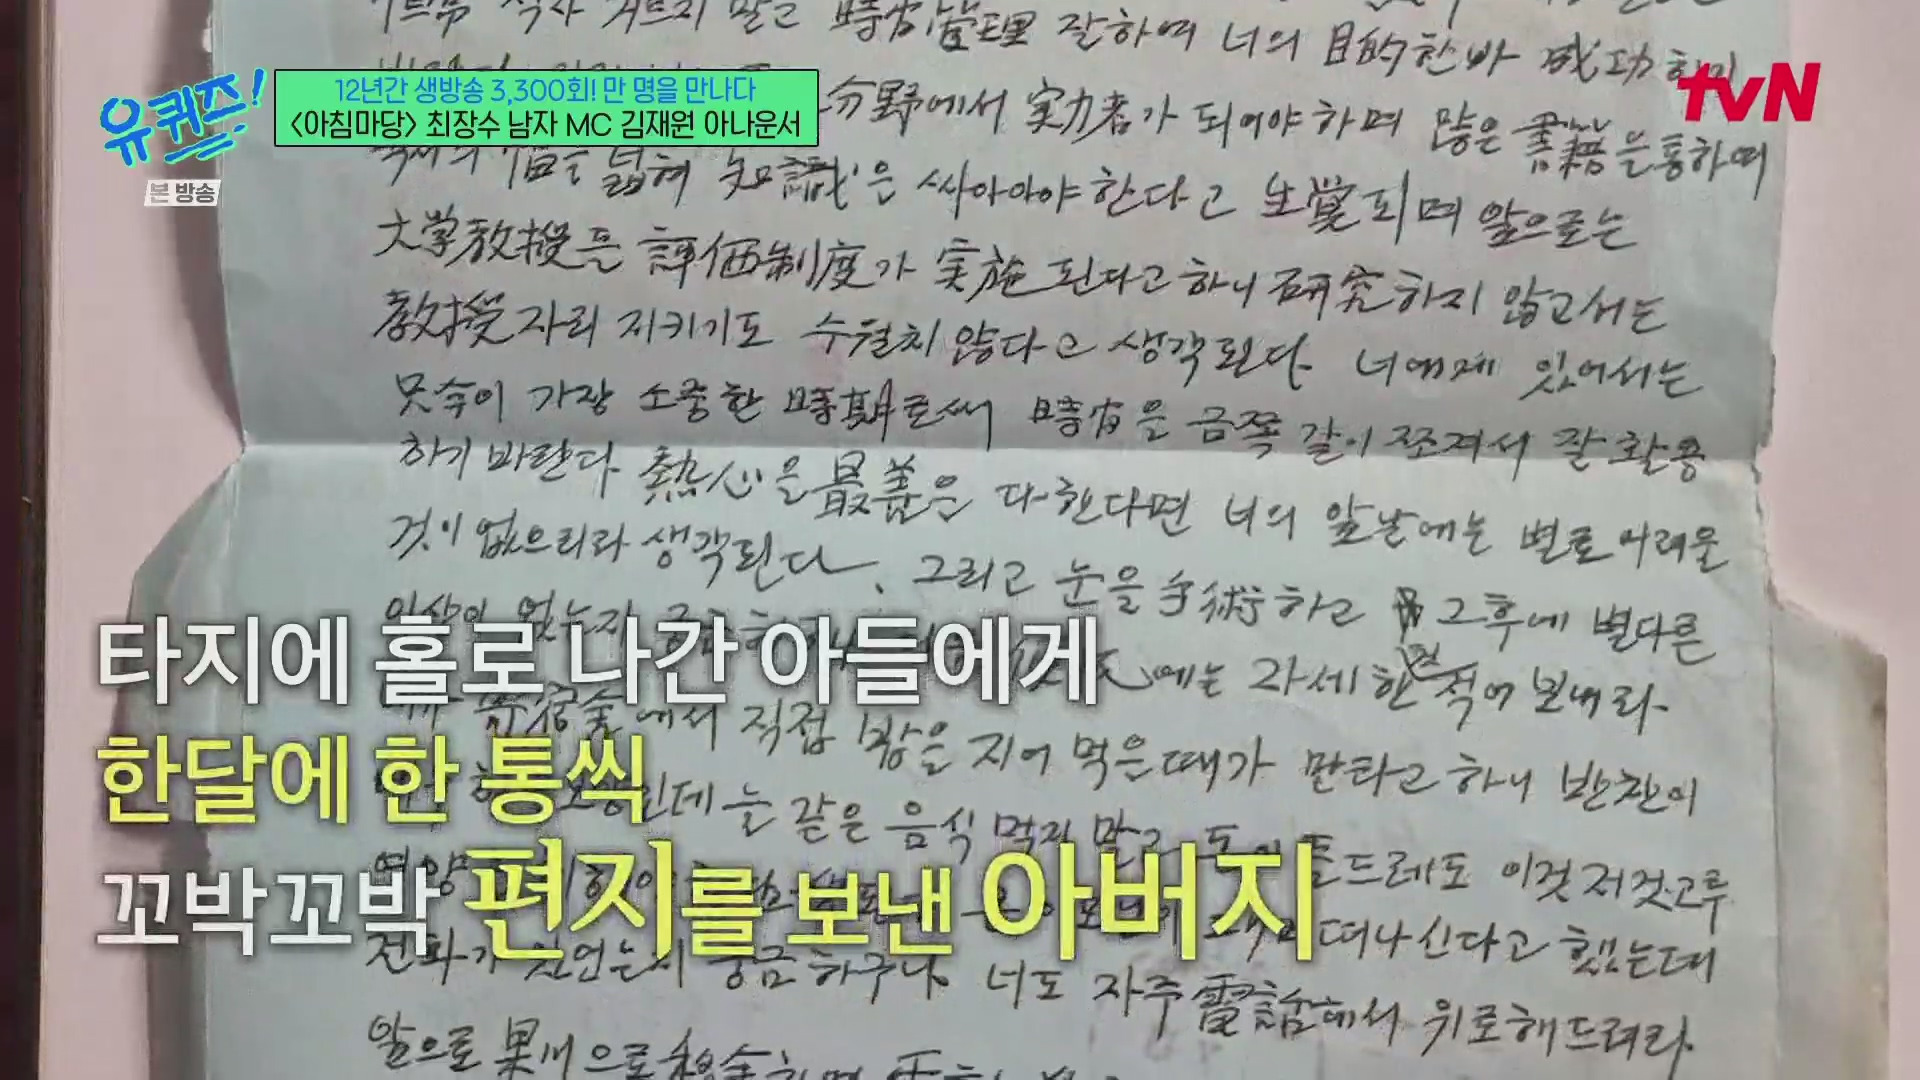 유퀴즈!
본 방송
12년간 생방송 3,300회! 만 명을 만나다
<아침마당> 최장수 남자 MC 김재원 아나운서
tvN
말고 時間管理 잘하여 너의 目的한바 成功하기
分野에서 実力者가 되어야하며 많은 書籍을통하여
넓혀 知識은 싸아아야한다고 生覚되며 앞으로는
大学教授들 評価制度가 実施된다고하니 研究하지 않고서는
教授자리 지키기도 수월치않다고 생각된다. 너에게 있어서는
가장 소중한 時期로써 時間을 금쪽같이 쪼겨서 잘 활용
하기 바란다. 熱心을 最善은 다한다면 너의 앞날에는 별로 어려울
것이 없으리라 생각된다. 그리고 눈을 手術하고 그후에 별다른
에는 자세한 것 적어 보내라.
寄宿舍에서 직접 밥을 지어 먹은때가 많타고 하니 반찬이
늘 같은 음식 먹지 말고 이것저것고루
떠나신다고 했는데
전화가 궁금하구나. 너도 자주 電話해서 위로해드려라.
앞으로
타지에 홀로 나간 아들에게
한달에 한 통씩
꼬박꼬박 편지를 보낸 아버지